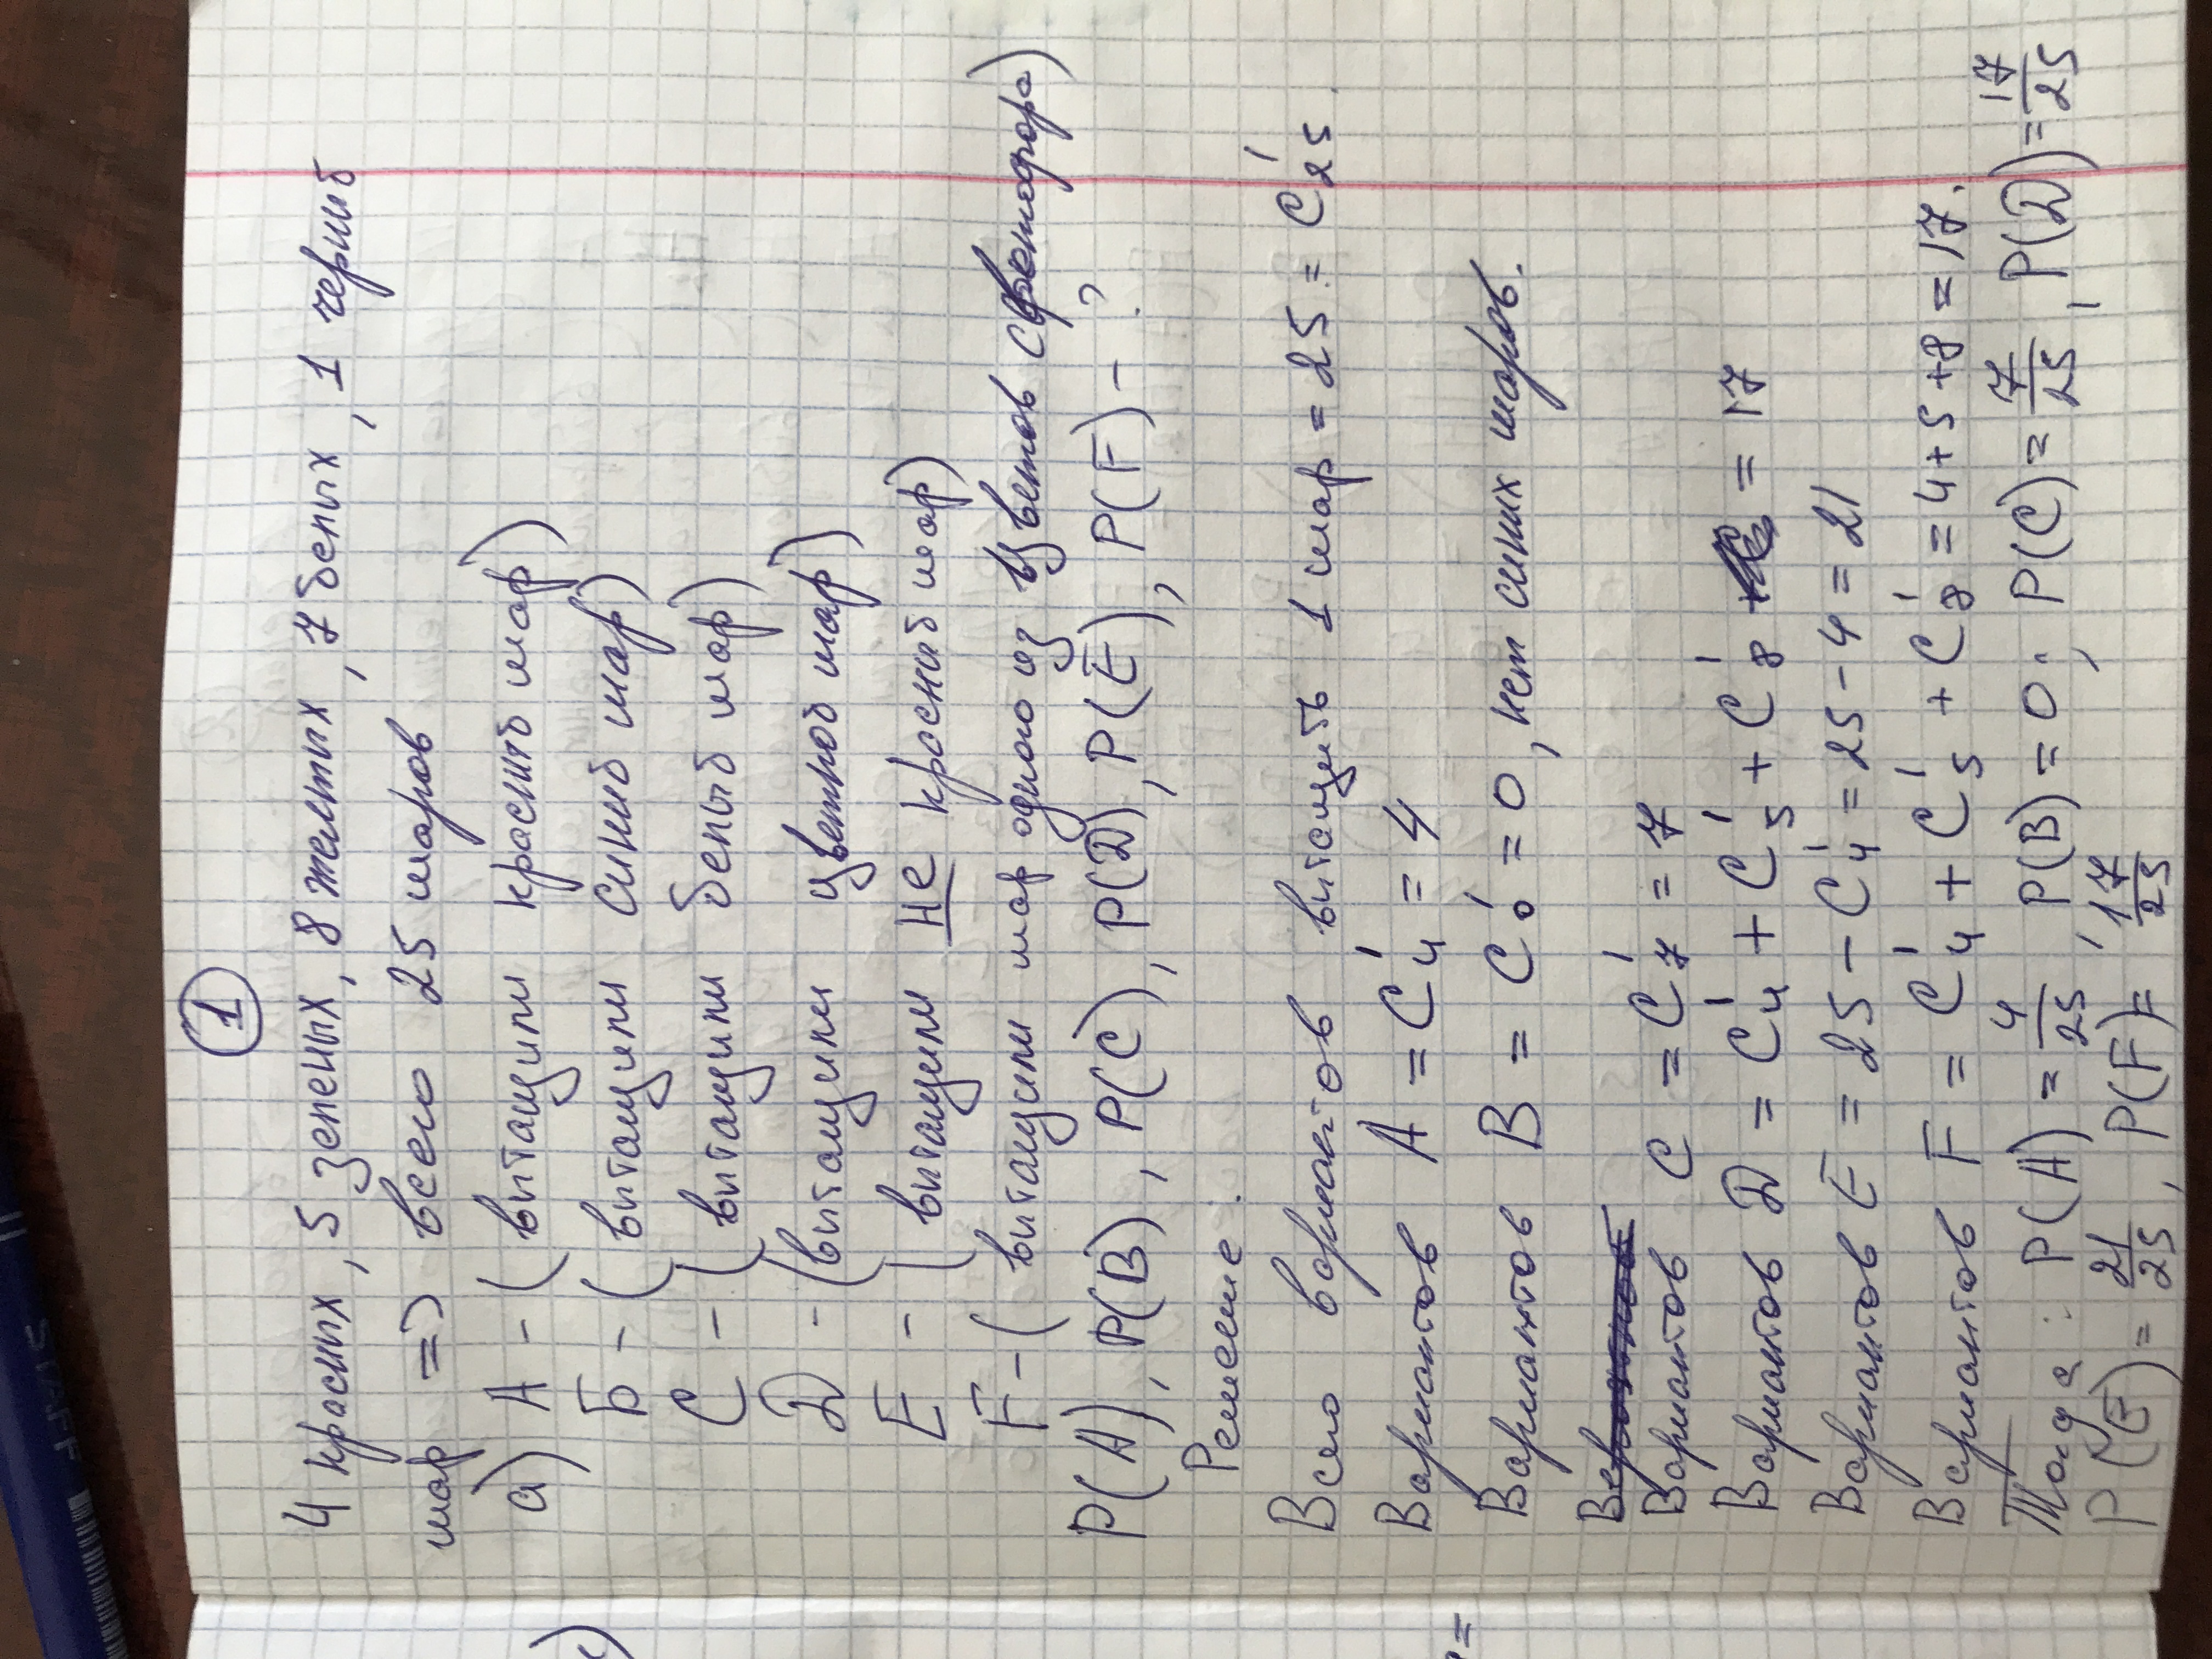 1
4 красных, 5 зеленых, 8 желтых, 7 белых, 1 черный
шар => всего 25 шаров
а) А - (вытащили красный шар)
Б - (вытащили синий шар)
С - (вытащили белый шар)
D - (вытащили цветной шар)
E - (вытащили не красный шар)
F - (вытащили шар одного из цветов светофора)
P(A), P(B), P(C), P(D), P(E), P(F) - ?
Решение:
Всего вариантов вытащить 1 шар = 25 = C¹₂₅.
Вариантов A = C¹₄ = 4
Вариантов B = C¹₀ = 0, нет синих шаров.
Вариантов C = C¹₇ = 7
Вариантов D = C¹₄ + C¹₅ + C¹₈ = 17
Вариантов E = 25 - C¹₄ = 25 - 4 = 21
Вариантов F = C¹₄ + C¹₅ + C¹₈ = 4+5+8 = 17.
Тогда: P(A) = 4/25, P(B) = 0; P(C) = 7/25, P(D) = 17/25
P(E) = 21/25, P(F) = 17/25